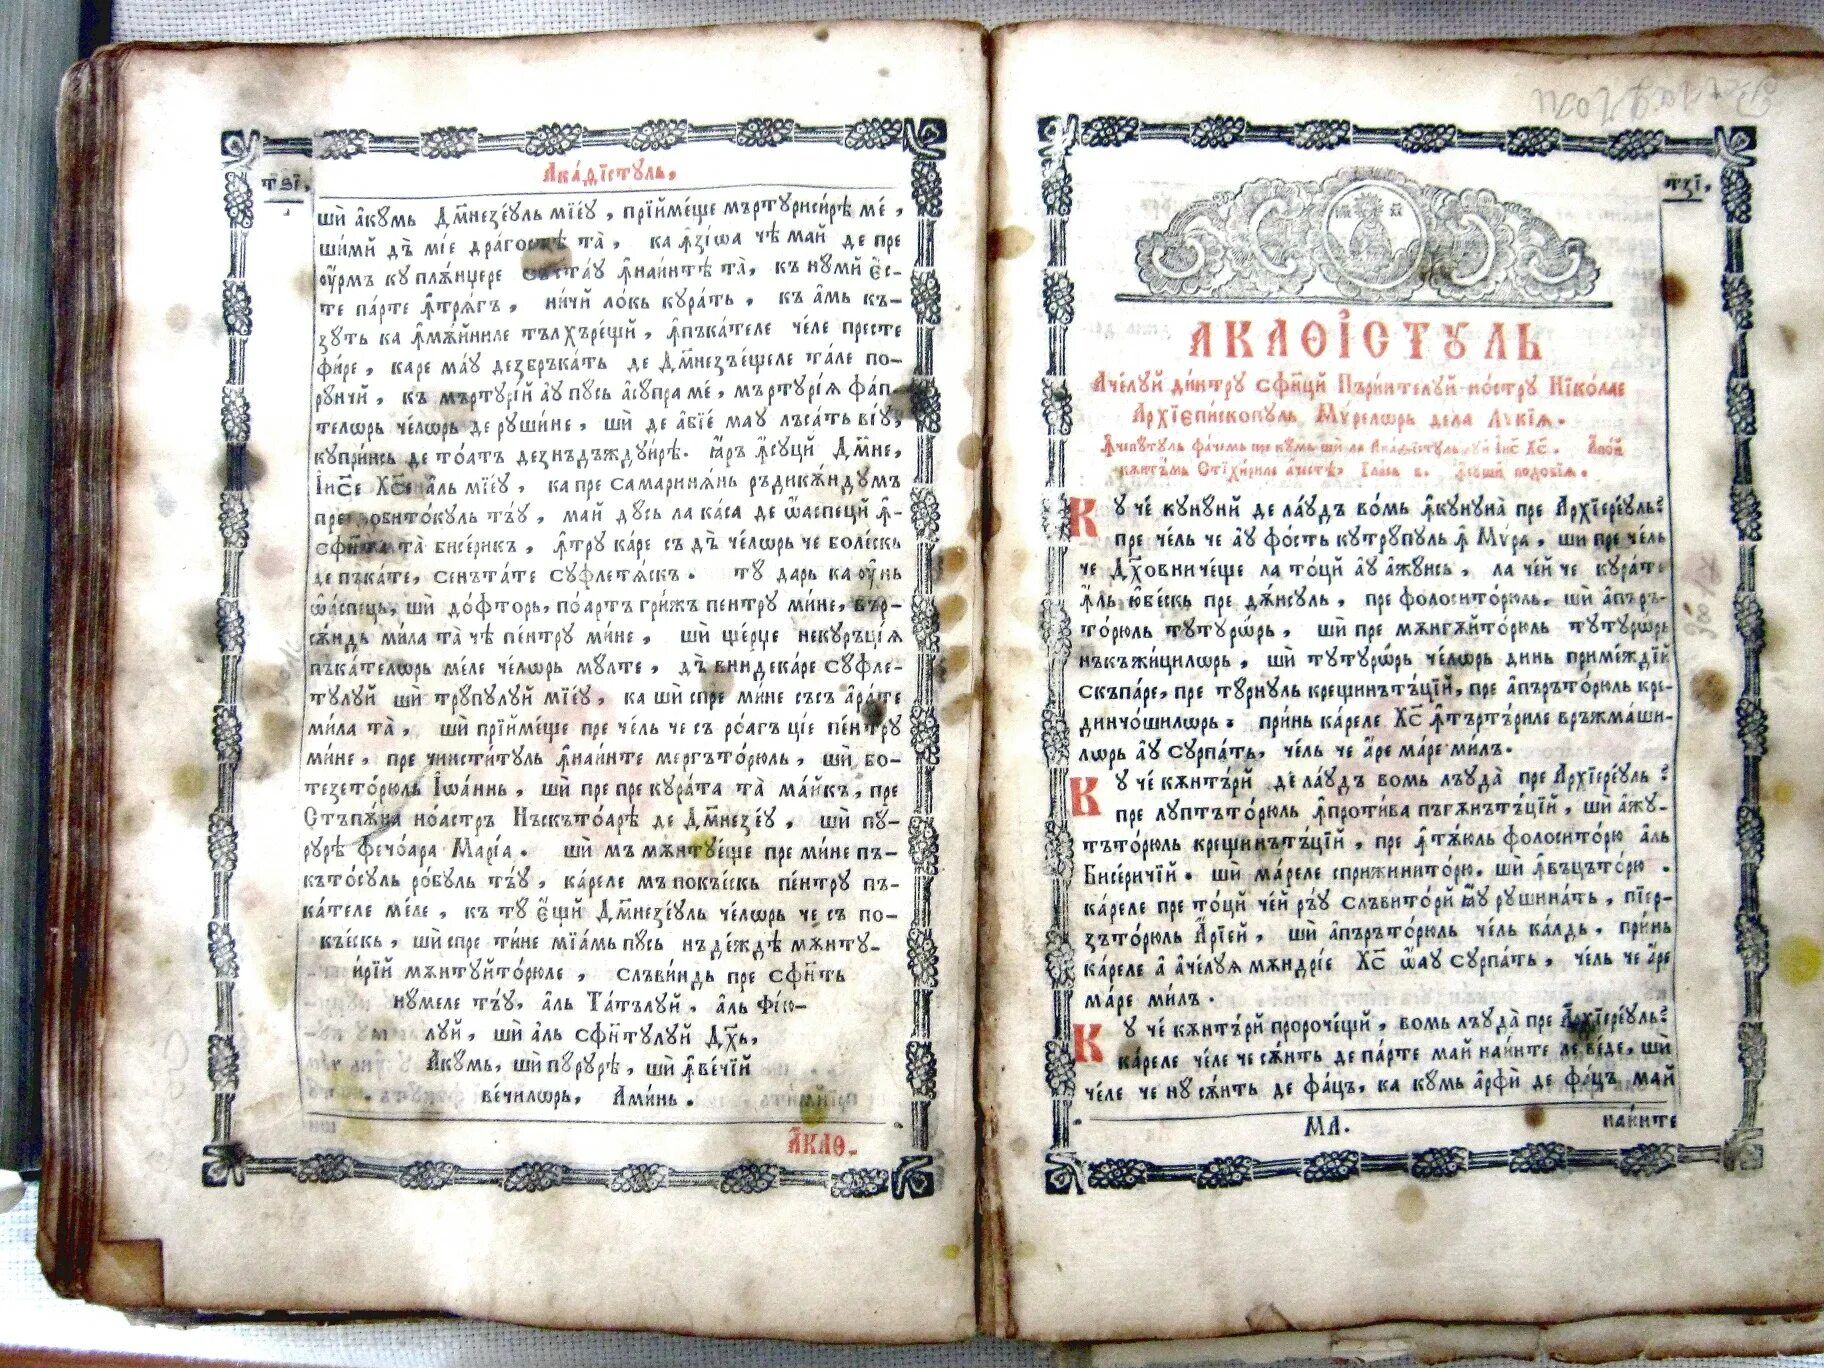 Ака́ѳїстꙋль.
тѕ҃і.
шѝ акꙋмь Дм҃незе́ꙋль мїе́ꙋ, прїйме́ще мъртꙋриси́рѣ ме́,
шимѝ дъ̀ мі́е дра́гостѣ та̀, ка ꙟ҆зі́ѡа чѣ май де пре
ᲂу҆́рмъ кꙋ плѫ́нџере ... ꙟ҆наи́нтѣ та̀, къ нꙋмѝ є҆́с-
те па́рте ꙟ҆трѧ́гъ, ни́чй ло́кь кꙋра́ть, къ а҆́мь къ-
зꙋть ка ꙟ҆мѫ́йниле тълхъре́щй, ꙟ҆пъка́теле че́ле пре́сте
фи́ре, каре ма́ꙋ дезбръка́ть де Дм҃незъе́щеле та́ле по-
рꙋнчй, къ мъртꙋрі́й аꙋ пꙋсь а҆сꙋпра ме́, мъртꙋрі́ѧ фа́п-
телѡрь че́лѡрь де рꙋши́не, шѝ де а҆бїе́ маꙋ лъса́ть ві́ꙋ,
кꙋпри́нсь де то́атъ дезнъдъждꙋи́рѣ. І҆а́ръ ꙟ҆сꙋцй Дм҃не,
І҆ис҃е Хс҃е а҆́ль мїе́ꙋ, ка пре самаринѧ́нь ръдикѫ́ндꙋмъ
пре добито́кꙋль тъ́ꙋ, май дꙋсь ла ка́са де ѡ҆а́спецй ꙟ҆-
сфн҃та та̀ бисе́рикъ, ꙟ҆трꙋ ка́ре съ дъ̀ че́лѡрь че боле́скь
де пъка́те, сенъта́те сꙋфлетѧ́скъ. тꙋ дарь ка ᲂу҆́нь
ѡ҆а́спець, шѝ до́фторь, по́артъ гри́жъ пентрꙋ ми́не, въ́р-
сѫ́ндь ми́ла та̀ чѣ пе́нтрꙋ ми́не, шѝ ще́рџе некꙋръці́ѧ
пъка́телѡрь ме́ле че́лѡрь мꙋ́лте, дъ̀ виндека́ре сꙋфле-
тꙋлꙋй шѝ трꙋ́пꙋлꙋй мїе́ꙋ, ка шѝ спре ми́не съсъ а҆ра́те
ми́ла та̀, шѝ прїйме́ще пре че́ль че съ ро́агъ ці́е пе́нтрꙋ
ми́не, пре чинсти́тꙋль ꙟ҆наи́нте мергъто́рюль, шѝ бо-
тезето́рюль І҆ѡа́ннь, шѝ пре пре кꙋра́та та̀ ма́йкъ, пре
Стъпѫ́на но́астръ Нъскъто́арѣ де Дм҃незе́ꙋ, шѝ пꙋ́-
рꙋрѣ фечо́ара Марі́а. шѝ мъ мѫнтꙋе́ще пре ми́не пъ-
къто́сꙋль ро́бꙋль тъ́ꙋ, ка́реле мъ покъе́скь пе́нтрꙋ пъ-
ка́теле ме́ле, къ тꙋ є҆́щй Дм҃незе́ꙋль че́лѡрь че съ по-
къе́скь, шѝ спре ти́не мїа́мь пꙋсь нъде́ждѣ мѫнтꙋ-
и́рїй мѫнтꙋйто́рюле, слъви́ндь пре сфн҃ть
нꙋ́меле тъ́ꙋ, а҆́ль Та́тълꙋй, а҆́ль Фі́ю-
лꙋй, шѝ а҆ль сфн҃тꙋлꙋй Дх҃ь,
Акꙋмь, шѝ пꙋ́рꙋрѣ, шѝ ꙟ҆ве́чїй
ве́чилѡрь, Ами́нь.
А҆КАѲ.
тз҃і.
АКАѲІСТꙊЛЬ
Аче́лꙋй ди́нтрꙋ сфн҃цй Пъри́нтелꙋй но́стрꙋ Нїко́лае
Архїепи́скопꙋль Мѵ́релѡрь дела Лѵкі́ѧ.
Ꙟ҆чепꙋ́тꙋль фа́чемь пре кꙋмь шѝ ла Ака́ѳїстꙋль лꙋй І҆ис҃ Хс҃. Апо́й
кѫнтъ́мь Стїхи́риле аче́стѣ, Гла́сь в. ꙟ҆сꙋшй подо́бїѧ.
Кꙋ че́ кꙋнꙋ́нй де ла́ꙋдъ во́мь ꙟ҆кꙋнꙋна̀ пре Архїере́ꙋль?
пре че́ль че аꙋ фо́сть кꙋ трꙋ́пꙋль ꙟ҆ Мѵ́ра, шѝ пре че́ль
че Дх҃овниче́ще ла то́цй аꙋ а҆жꙋ́нсь, ла че́й че кꙋра́ть
ꙟ҆ль юбе́скь пре дѫ́нсꙋль, пре фолосито́рюль, шѝ а҆пъръ-
то́рюль тꙋтꙋрѡ́рь, шѝ пре мѫнгѫйто́рюль тꙋтꙋрѡрь
нъкъжи́цилѡрь, шѝ тꙋтꙋрѡ́рь че́лѡрь динь приме́ждїй
скъпа́ре, пре тꙋ́рнꙋль крещинътъ́цїй, пре а҆пъръто́рюль кре-
динчо́шилѡрь. при́нь ка́реле Хс҃ ꙟ҆търтъ́риле връжма́ши-
лѡрь аꙋ сꙋрпа́ть, че́ль че а҆́ре ма́ре ми́лъ.
Кꙋ че́ кѫнтъ́рй де ла́ꙋдъ вомь лъꙋда̀ пре Архїере́ꙋль?
пре лꙋптъто́рюль ꙟ҆проти́ва пъгѫнътъ́цїй, шѝ а҆жꙋ-
тъто́рюль крещинътъ́цїй, пре ꙟ҆тѫ́юль фолосито́рю а҆ль
Бисе́ричїй. шѝ ма́реле сприжинито́рю. шѝ ꙟ҆въцъто́рю.
ка́реле пре то́цй че́й ръ́ꙋ слъвито́рй і҆аꙋ рꙋшина́ть, пїер-
зъто́рюль А҆рі́ей, шѝ а҆пъръто́рюль че́ль ка́лдь, при́нь
ка́реле а҆ а҆че́лꙋѧ мѫндрі́е Хс҃ ѡ҆аꙋ сꙋрпа́ть, че́ль че а҆́ре
ма́ре ми́лъ.
Кꙋ че́ кѫнтъ́рй пророче́щй, вомь лъꙋда̀ пре Архїере́ꙋль?
ка́реле че́ле че сѫ́нть де па́рте май наи́нте ле ве́де, шѝ
че́ле че нꙋ сѫ́нть де фа́цъ, ка кꙋмь а҆рфѝ де фа́цъ май
МА.
наи́нте